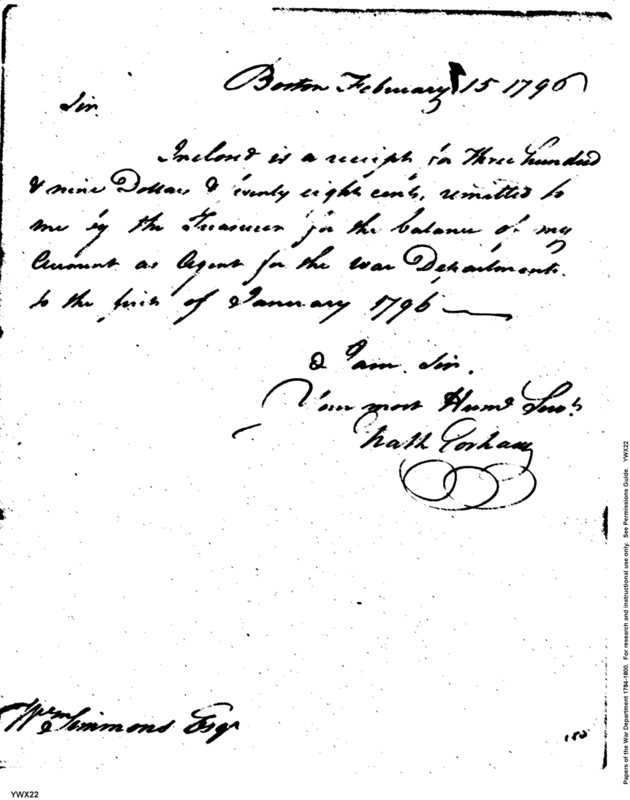 Boston February 15 1796
Sir
Inclosd is a receipt for three hundred
& nine Dollars & twenty eight cents, remitted to
me by the Treasurer for the balance of my
Account as Agent for the War Department
to the first of January 1796
& I am Sir.
Your most Humb Servt
Nath Gorham
Wm Simmons Esqr
150
YWX22
Papers of the War Department 1784-1800. For research and instructional use only. See Permissions Guide. YWX22